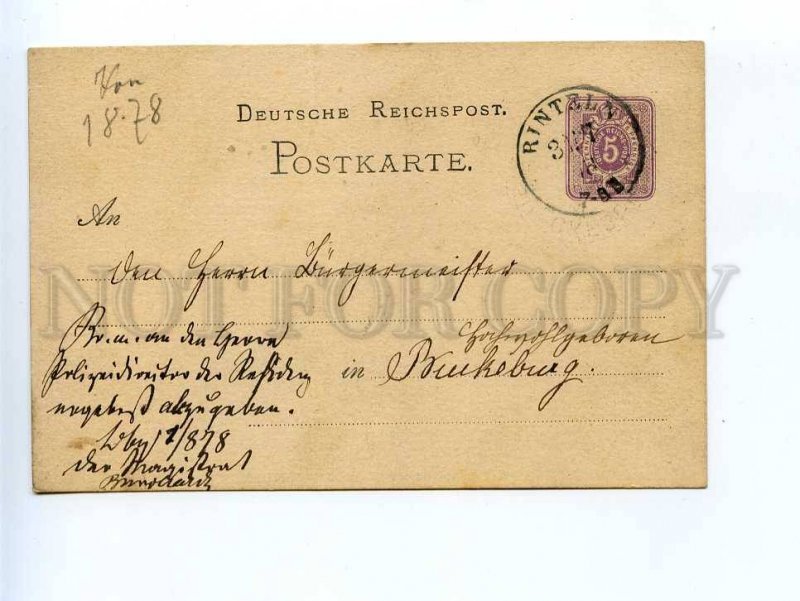 Von
18.78
DEUTSCHE REICHSPOST.
POSTKARTE.
RINTELN
7-8 N
5
An
den Herrn Bürgermeister
Hochwohlgeboren
in Bückeburg.
Br. m. an den Herrn
Polizeidirector der Residenz
ergebenst abzugeben.
1/878
der Magistrat
NOT FOR COPY